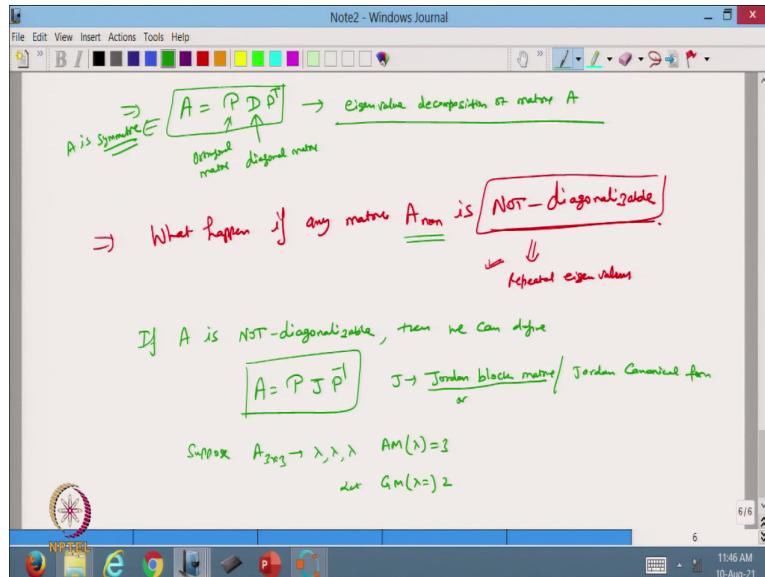 Note2 - Windows Journal
File Edit View Insert Actions Tools Help
⇒ A = P D Pᵀ → eigenvalue decomposition of matrix A
A is symmetric ∈
orthogonal matrix diagonal matrix
⇒ What happen if any matrix Aₙₓₙ is NOT-diagonalizable.
⇓
✓ Repeated eigen values
If A is NOT-diagonalizable, then we can define
A = P J P⁻¹ J → Jordan block matrix / Jordan Canonical form
or
Suppose A₃ₓ₃ → λ, λ, λ AM(λ)=3
Let GM(λ=) 2
NPTEL
6/6
6
11:46 AM
10-Aug-21